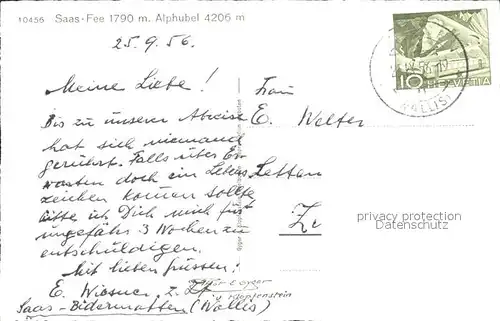 10456 Saas-Fee 1790 m. Alphubel 4206 m
25.9.56.
HELVETIA
10
WALLIS
Meine Liebe!
Bis zu unserer Abreise
hat sich niemand
gerührt. Falls über Er-
warten doch ein Lebens
zeichen kommen sollte
bitte ich Dich mich für
ungefähr 3 Wochen zu
entschuldigen.
Mit lieben grüssen:
E. Wiesner, z. Zt.
Saas-Bidermatten (Wallis)
Frau
E. Welter
Letten
Zr
privacy protection
Datenschutz